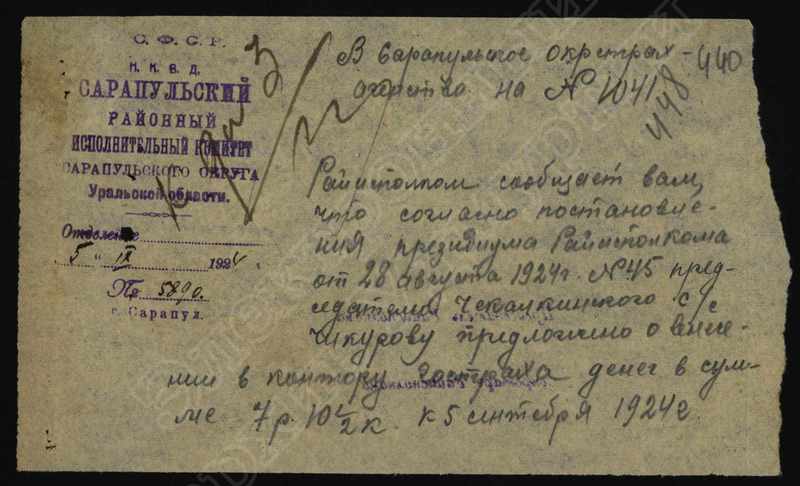 С. Ф. С. Р.
Н. К. В. Д.
САРАПУЛЬСКИЙ
РАЙОННЫЙ
ИСПОЛНИТЕЛЬНЫЙ КОМИТЕТ
САРАПУЛЬСКОГО ОКРУГА
Уральской области.
Отделение
5 " IX 1924
№ 5890.
г. Сарапул.
В Сарапульское окрстрах-
агентство на № 1041
440
448
Райисполком сообщает вам,
что согласно постановле-
ния президиума Райисполкома
от 28 августа 1924г. №45 пред-
седателю Чекалкинского с/с
Чикурову предложено о внесе-
нии в контору Госстраха денег в сум-
ме 7р. 10 1/2 к. к 5 сентября 1924г